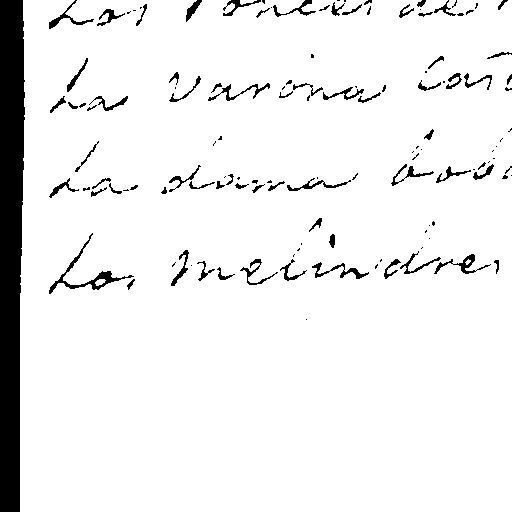 Los Ponces de
La varona Cast
La dama boba
Los melindres